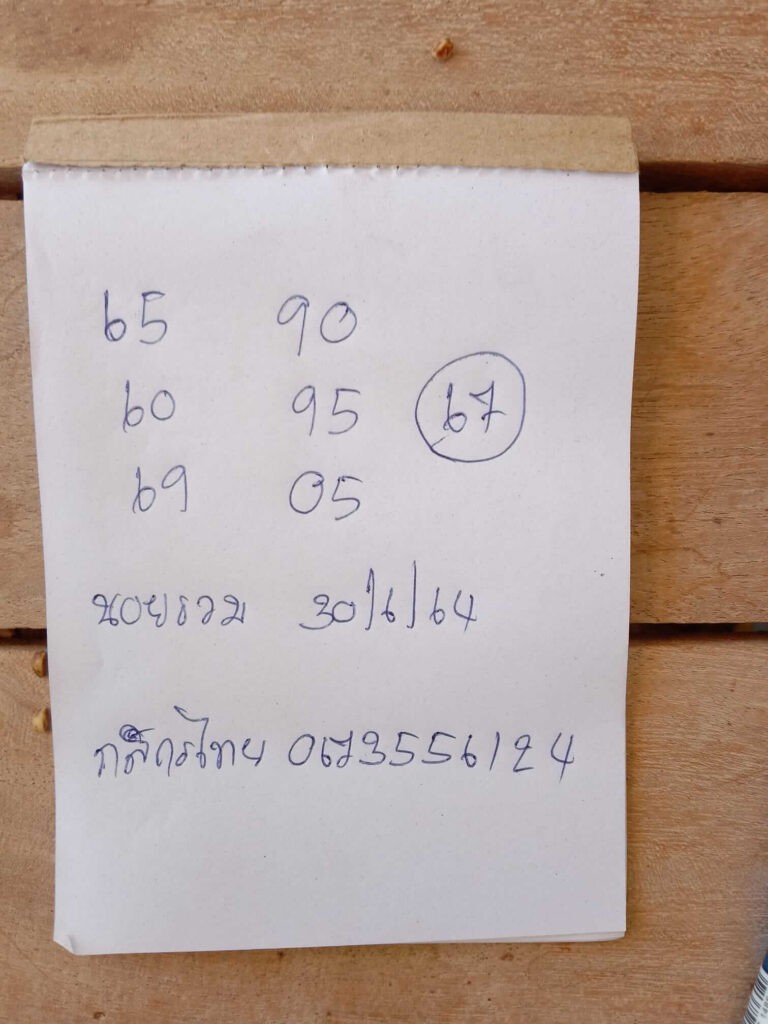 65 90
60 95 67
69 05
หอยรวม 30/6/64
กสิกรไทย 0673556124